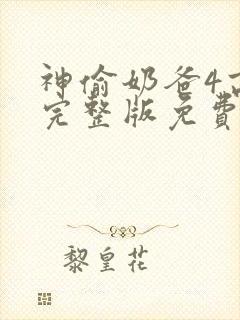 神偷奶爸4高
完整版免費
黎皇花